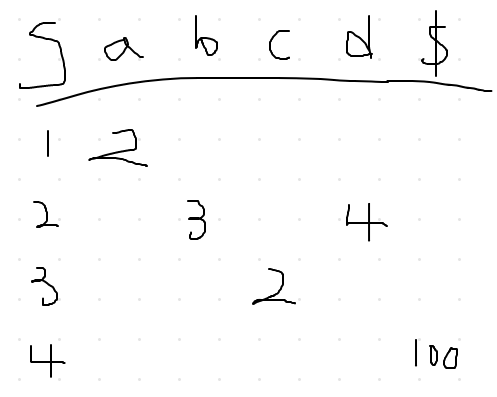 S a b c d $
1 2
2 3 4
3 2
4 100